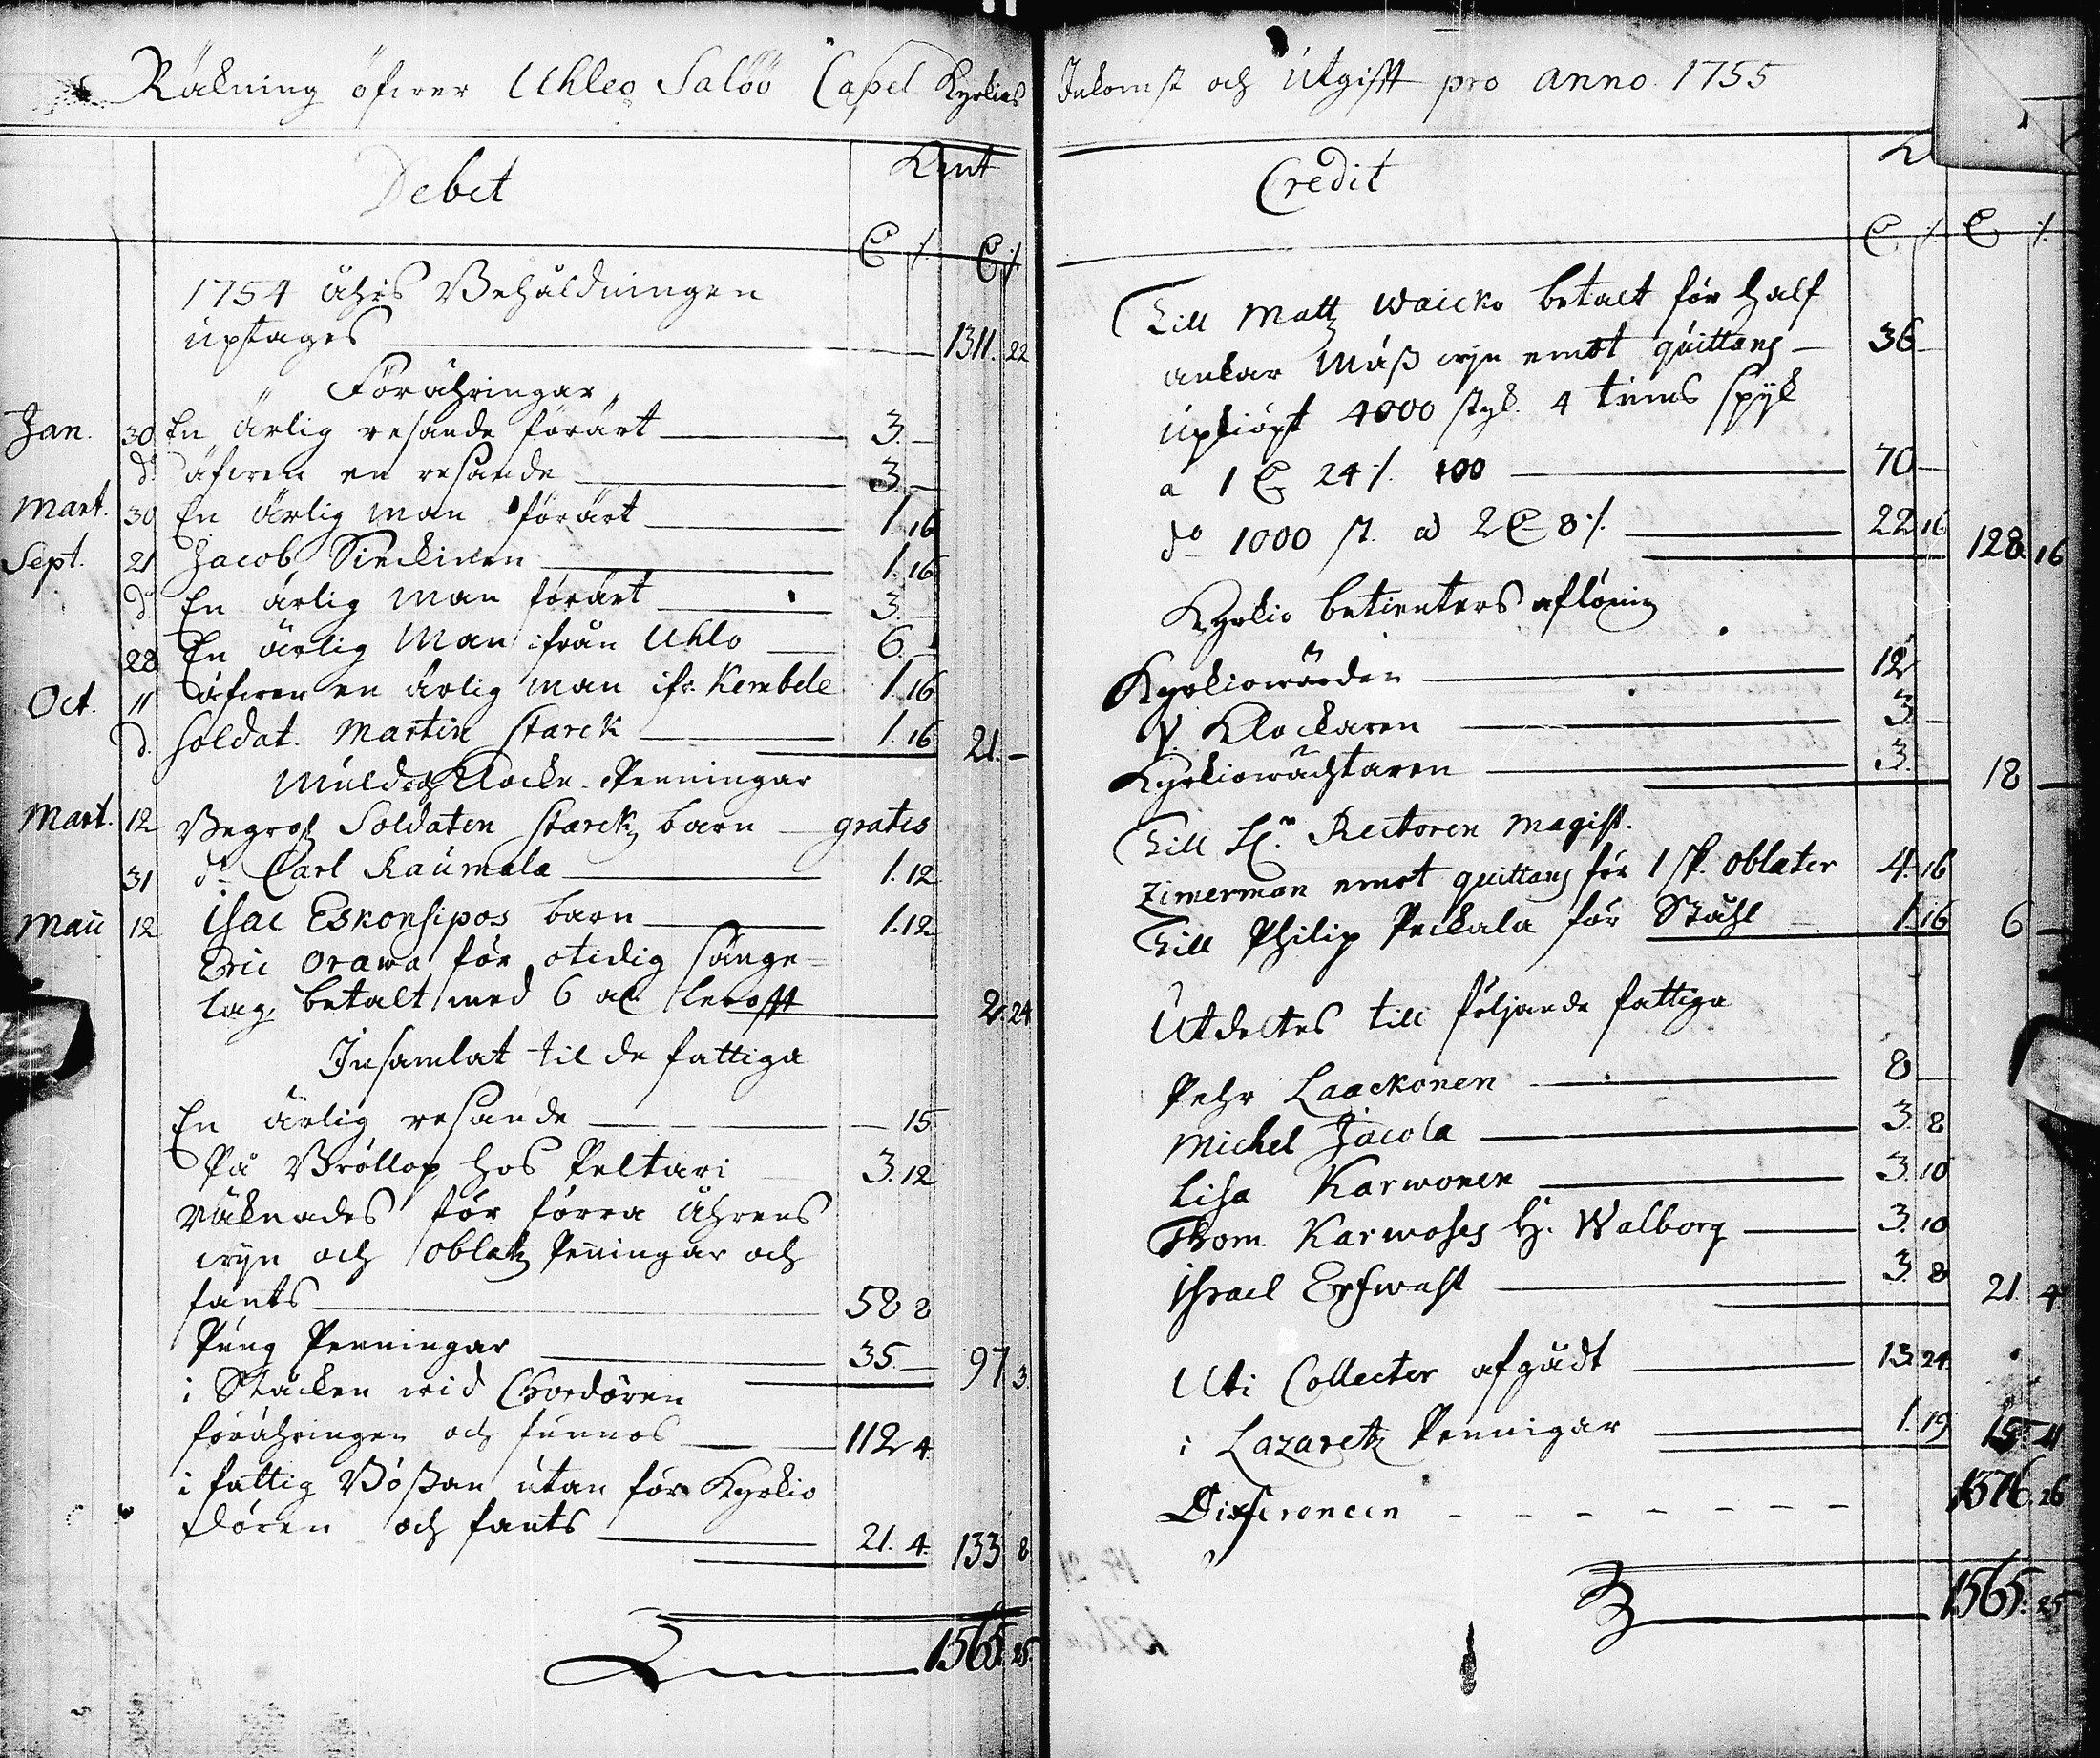 Räkning öfwer Uhleo Salöö Capel Kyrkios
Debet
Kmt
1754 åhrs Behåldningen
uptages 1311. 22
Förähringar
Jan. 30 En ärlig resande förärt 3. —
do äfwen en resande 3. —
Mart. 30 En ärlig man förärt 1. 16
Sept. 21 Jacob Sirckinen 1. 16
do En ärlig man förärt 3. —
28 En ärlig Man ifrån Uhlo 6. —
Oct. 11 äfwen en ärlig man ifr. Kembele 1. 16
d. Soldat. Martin Starck 1. 16 21. —
Muld och Klocke-Penningar
Mart. 12 Begrof Soldaten Starckz barn gratis
31 do Carl Raumala 1. 12
Maii 12 Isac Eskonsipos barn 1. 12
Eric Orawa för otidig sänge=
lag, betalt med 6 al. lerofft 2. 24
Insamlat til de fattiga
En ärlig resande — 15
På Bröllop hos Peltari 3. 12
räknades för förra Åhrens
wyn och oblatz Penningar och
fants 58 8
Pung Penningar 35. — 97 3.
i Stäcken wid Chordören
förähringen och funnos 112 4.
i fattig Bößan utan för Kyrkio
dören och fants 21. 4. 133 8
1565. 25.
Inkomst och Utgifft pro anno. 1755
Credit
Till Matz Waicko betalt för half
ankar Mäß wyn emot quittang — 36 —
Upkiöpt 4000 styk. 4 tums spyk
a 1 24 ./. 100 70 —
do 1000 st. a 2 8 ./. 22 16 128. 16
Kyrkio betienters aflöning
Kyrkiowärden 12
V. Klockaren 3. —
Kyrkiowächtaren 3. 18 —
Till H:r Rectoren Magist.
Zimerman emot quittang för 1 st. oblater 4. 16
Till Philip Peckala för Ståhl 1. 16 6 —
Utdeltes till följande fattiga
Pehr Laackonen 8 —
Michel Jacola 3. 8
Lisa Karwonen 3. 10
Thom. Karwoses H. Walborg 3. 10
Israel Erfwast 3. 8 21. 4
Uti Collecter afgådt 13. 24.
i Lazaretz Pennigar 1. 19 15. 11
Differencen 1376. 26
1565. 25